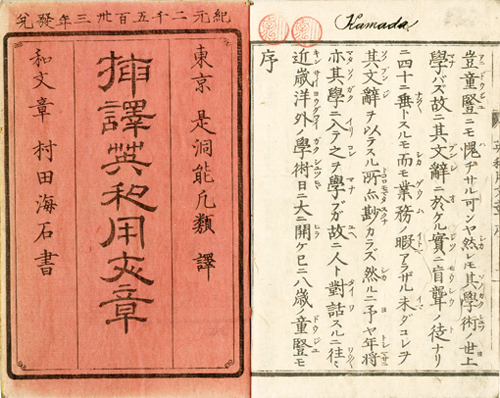 紀元二千五百卅三年發兌
東京 是洞能凡類 譯
挿譯英和用文章
和文章 村田海石書
Kamada
序
近歳洋外ノ學術日ニ大ニ開ケ已ニ八歳ノ童豎モ
亦其學ニ入テ之ヲ學ブガ故ニ人ト對話スルニ往々
其文辭ヲ以テスル所尠カラズ然ルニ予ヤ年將
ニ四十ニ垂トスルモ而モ業務ノ暇アラザル未ダコレヲ
學バズ故ニ其文辭ニ於ケル實ニ盲聾ノ徒ナリ
豈童豎ニモ愧ヂサル可ンヤ然レモ其學術ノ世上